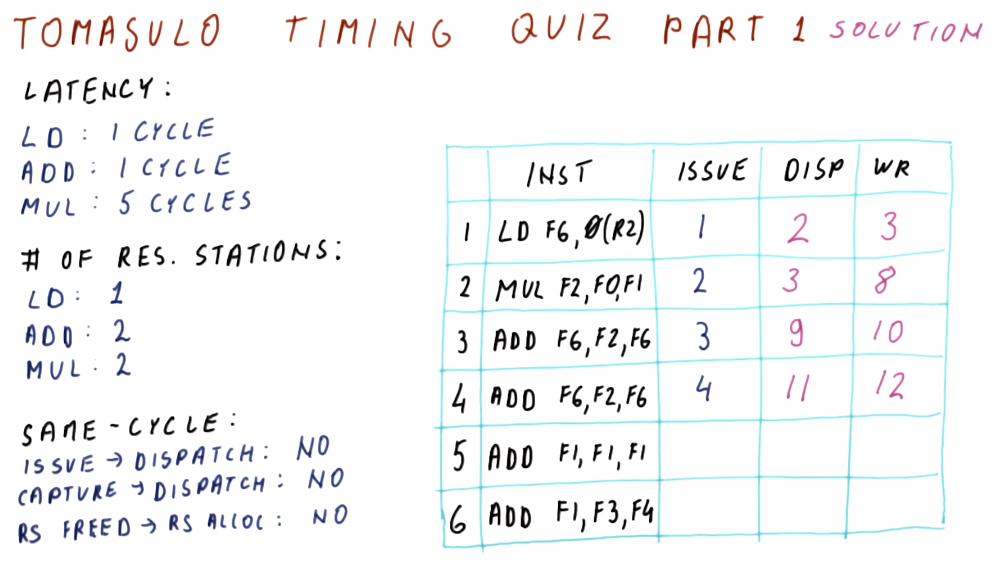 TOMASULO TIMING QUIZ PART 1 SOLUTION
LATENCY:
LD: 1 CYCLE
ADD: 1 CYCLE
MUL: 5 CYCLES
# OF RES. STATIONS:
LD: 1
ADD: 2
MUL: 2
SAME-CYCLE:
ISSUE → DISPATCH: NO
CAPTURE → DISPATCH: NO
RS FREED → RS ALLOC: NO
INST ISSUE DISP WR
1 LD F6, 0(R2) 1 2 3
2 MUL F2, F0, F1 2 3 8
3 ADD F6, F2, F6 3 9 10
4 ADD F6, F2, F6 4 11 12
5 ADD F1, F1, F1
6 ADD F1, F3, F4